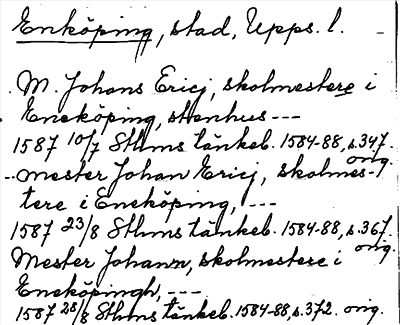 Enköping, stad, Upps. l.
M. Johans Ericj, skolmestere i
Eneköping, stenhus ---
1587 10/7 Sthms tänkeb. 1584-88, s.347.
orig.
--mester Johan Ericj, skolmes-
tere i Eneköping, ---
1587 23/8 Sthms tänkeb. 1584-88, s.367.
orig.
Mester Johann, skolmestere i
Eneköpingh, ---
1587 28/8 Sthms tänkeb. 1584-88, s.372. orig.